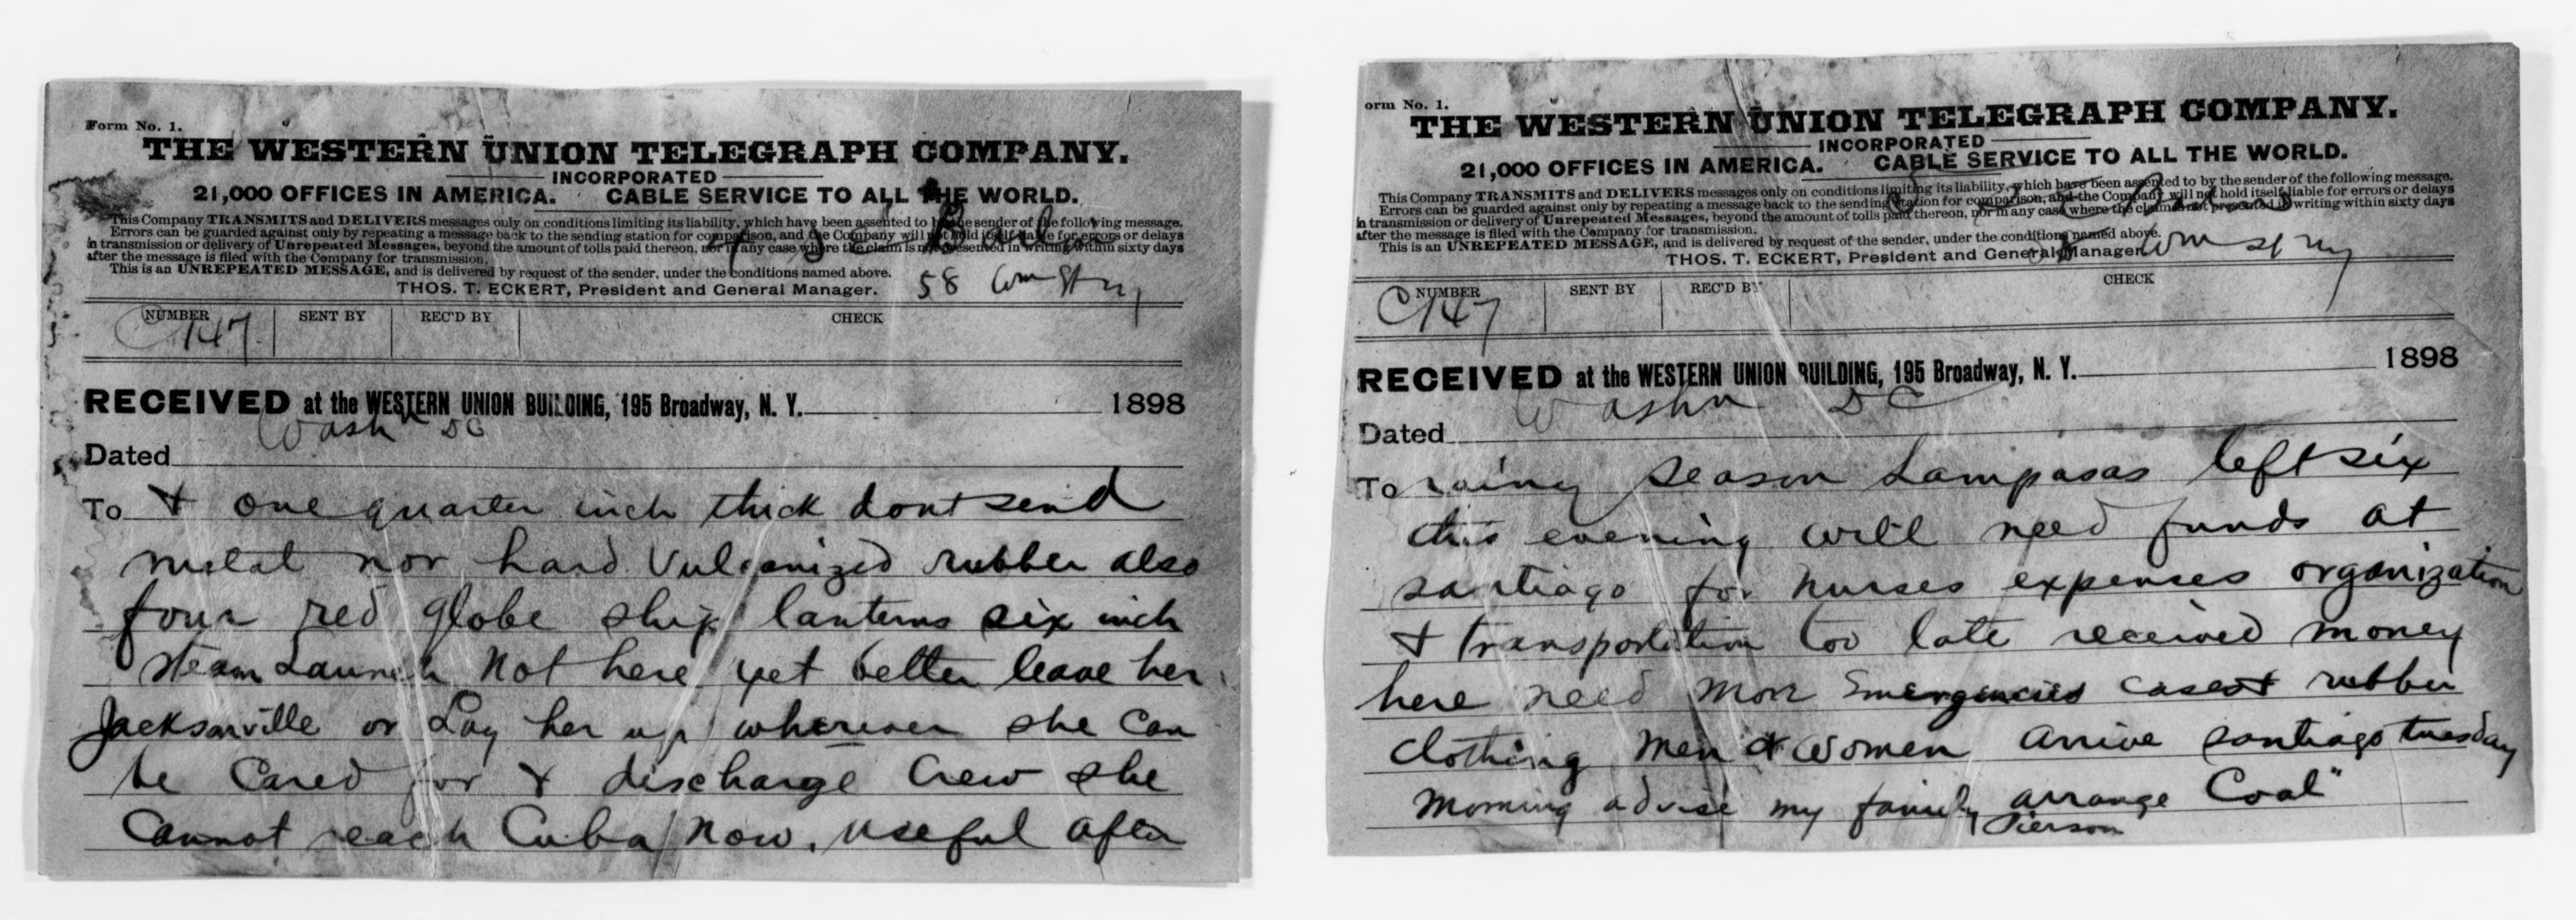 Form No. 1.
THE WESTERN UNION TELEGRAPH COMPANY.
INCORPORATED
21,000 OFFICES IN AMERICA. CABLE SERVICE TO ALL THE WORLD.
This Company TRANSMITS and DELIVERS messages only on conditions limiting its liability, which have been assented to by the sender of the following message.
Errors can be guarded against only by repeating a message back to the sending station for comparison, and the Company will not hold itself liable for errors or delays
in transmission or delivery of Unrepeated Messages, beyond the amount of tolls paid thereon, nor in any case where the claim is not presented in writing within sixty days
after the message is filed with the Company for transmission.
This is an UNREPEATED MESSAGE, and is delivered by request of the sender, under the conditions named above.
THOS. T. ECKERT, President and General Manager.
58
NUMBER SENT BY REC'D BY CHECK
C 147
RECEIVED at the WESTERN UNION BUILDING, 195 Broadway, N. Y. 1898
Wash DC
Dated
To & one quarter inch thick dont send
metal nor hard Vulcanized rubber also
four red globe ship lanterns six inch
steam Launch Not here yet better leave her
Jacksonville or Lay her up wherever she Can
be Cared for & discharge Crew she
Cannot reach Cuba Now. Useful after
orm No. 1.
THE WESTERN UNION TELEGRAPH COMPANY.
INCORPORATED
21,000 OFFICES IN AMERICA. CABLE SERVICE TO ALL THE WORLD.
This Company TRANSMITS and DELIVERS messages only on conditions limiting its liability, which have been assented to by the sender of the following message.
Errors can be guarded against only by repeating a message back to the sending station for comparison, and the Company will not hold itself liable for errors or delays
in transmission or delivery of Unrepeated Messages, beyond the amount of tolls paid thereon, nor in any case where the claim is not presented in writing within sixty days
after the message is filed with the Company for transmission.
This is an UNREPEATED MESSAGE, and is delivered by request of the sender, under the conditions named above.
THOS. T. ECKERT, President and General Manager.
NUMBER SENT BY REC'D BY CHECK
C 147
RECEIVED at the WESTERN UNION BUILDING, 195 Broadway, N. Y. 1898
Washn DC
Dated
To rainy season Lampasas left six
this evening will need funds at
santiago for Nurses expenses organization
& transportation too late received money
here need More Emergencies cases & rubber
Clothing Men & Women Arrive santiago tuesday
Morning advise my family arrange Coal"
Pierson